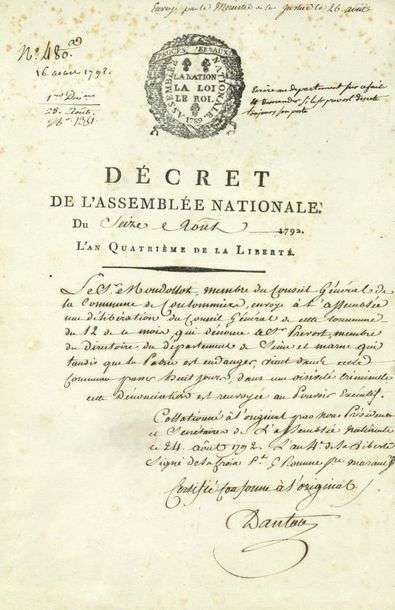 Envoyé par le Ministre de la Justice le 26 août
N.º 480.
16 août 1792.
28. Août.
PROCÈS VERBAUX
ASSEMBLÉE NATIONALE
LA NATION
LA LOI
LE ROI.
1789
Ecrire au département sur ce fait
et demander si le sr prevost est
toujours son poste
DÉCRET
DE L'ASSEMBLÉE NATIONALE.
Du Seize Août 1792.
L'AN QUATRIÈME DE LA LIBERTÉ.
Le Sr. Moudollot, membre du Conseil Général de
la Commune de Coulommier, envoye à l'assemblée
une délibération du Conseil Général de cette commune
du 12 de ce mois, qui dénonce le Sr. Prevost, membre
du Directoire du département de Seine et marne qui
tandis que la Patrie est en danger, vient dans cette
Commune passer huit jours, dans une oisiveté criminelle
cette Dénonciation est renvoyée au Pouvoir Exécutif.
Collationné à l'original par nous Président
et Secrétaires de l'assemblée nationale
le 24 août 1792. l'an 4e. de la liberté
Signé Delacroix Pt. G Romme
Certifié Conforme à l'original
Danton